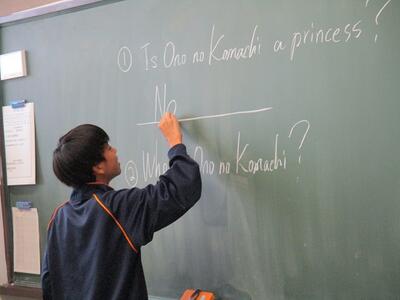 ① Is Ono no Komachi a princess?
No
② Ono no Komachi?